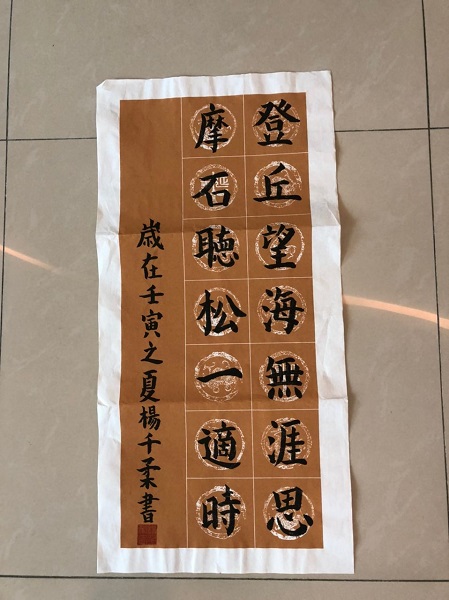 登丘望海無涯思
摩石聽松一適時
歲在壬寅之夏楊千柔書